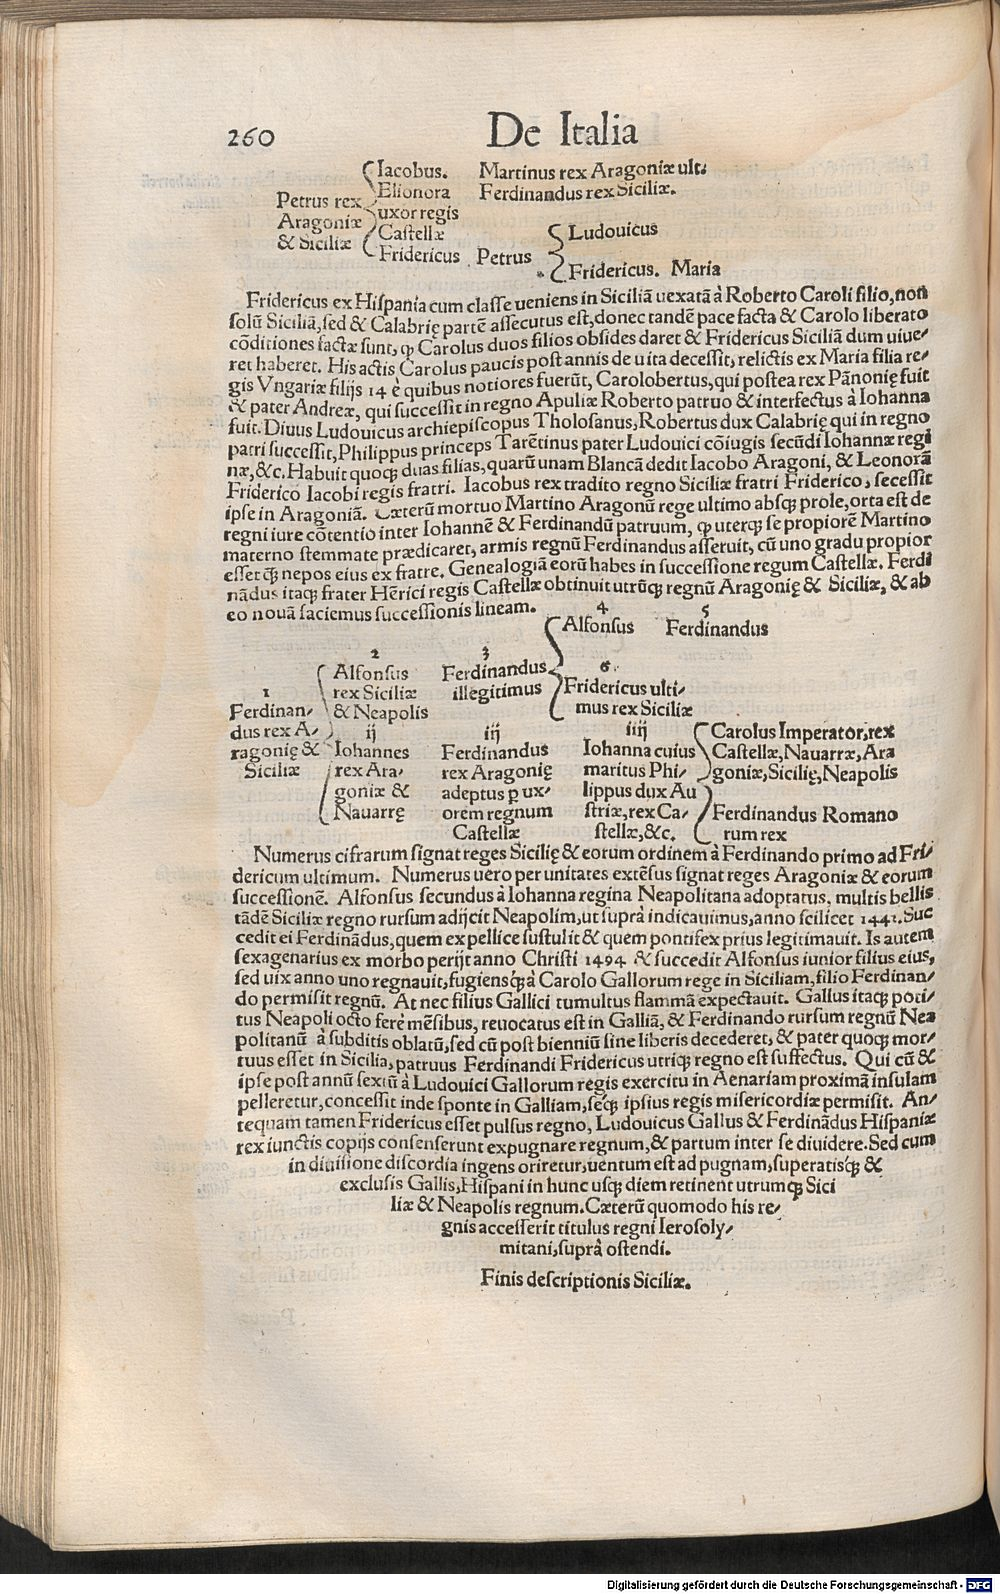 260
De Italia
Petrus rex
Aragoniæ
& Siciliæ
Iacobus.
Elionora
uxor regis
Castellæ
Fridericus
Martinus rex Aragoniæ ult⸗
Ferdinandus rex Siciliæ.
Petrus
Ludouicus
Fridericus. Maria
Fridericus ex Hispania cum classe ueniens in Siciliã uexatã à Roberto Caroli filio, non
solũ Siciliã, sed & Calabrię partẽ assecutus est, donec tandẽ pace facta & Carolo liberato
cõditiones factæ sunt, ꝙ Carolus duos filios obsides daret & Fridericus Siciliã dum uiue⸗
ret haberet. His actis Carolus paucis post annis de uita decessit, relictis ex Maria filia re⸗
gis Vngariæ filijs 14 è quibus notiores fuerũt, Carolobertus, qui postea rex Pãnonię fuit
& pater Andreæ, qui successit in regno Apuliæ Roberto patruo & interfectus à Iohanna
fuit. Diuus Ludouicus archiepiscopus Tholosanus, Robertus dux Calabrię qui in regno
patri successit, Philippus princeps Tarẽtinus pater Ludouici cõiugis secũdi Iohannæ regi
næ, &c. Habuit quoqꝫ duas filias, quarũ unam Blancã dedit Iacobo Aragoni, & Leonorã
Friderico Iacobi regis fratri. Iacobus rex tradito regno Siciliæ fratri Friderico, secessit
ipse in Aragoniã. Cæterũ mortuo Martino Aragonũ rege ultimo absqꝫ prole, orta est de
regni iure cõtentio inter Iohannẽ & Ferdinandũ patruum, ꝙ uterqꝫ se propiorẽ Martino
materno stemmate prædicaret, armis regnũ Ferdinandus asseruit, cũ uno gradu propior
esset qꝫ̃ nepos eius ex fratre. Genealogiã eorũ habes in successione regum Castellæ. Ferdi
nãdus itaqꝫ frater Hẽrici regis Castellæ obtinuit utrũqꝫ regnũ Aragonię & Siciliæ, & ab
eo nouã faciemus successionis lineam.
1
Ferdinan⸗
dus rex A⸗
ragonię &
Siciliæ
2
Alfonsus
rex Siciliæ
& Neapolis
3
Ferdinandus
illegitimus
4
Alfonsus
5
Ferdinandus
6
Fridericus ulti⸗
mus rex Siciliæ
ij
Iohannes
rex Ara⸗
goniæ &
Nauarrę
iij
Ferdinandus
rex Aragonię
adeptus ꝑ ux⸗
orem regnum
Castellæ
iiij
Iohanna cuius
maritus Phi⸗
lippus dux Au
striæ, rex Ca⸗
stellæ, &c.
Carolus Imperator, rex
Castellæ, Nauarræ, Ara
goniæ, Sicilię, Neapolis
Ferdinandus Romano
rum rex
Numerus cifrarum signat reges Sicilię & eorum ordinem à Ferdinando primo ad Fri⸗
dericum ultimum. Numerus uero per unitates extẽsus signat reges Aragoniæ & eorum
successionẽ. Alfonsus secundus à Iohanna regina Neapolitana adoptatus, multis bellis
tãdẽ Siciliæ regno rursum adijcit Neapolim, ut suprà indicauimus, anno scilicet 1442. Suc
cedit ei Ferdinãdus, quem ex pellice sustulit & quem pontifex prius legitimauit. Is autem
sexagenarius ex morbo perijt anno Christi 1494 & succedit Alfonsus iunior filius eius,
sed uix anno uno regnauit, fugiensqꝫ à Carolo Gallorum rege in Siciliam, filio Ferdinan⸗
do permisit regnũ. At nec filius Gallici tumultus flammã expectauit. Gallus itaqꝫ poti⸗
tus Neapoli octo ferè mẽsibus, reuocatus est in Galliã, & Ferdinando rursum regnũ Nea
politanũ à subditis oblatũ, sed cũ post bienniũ sine liberis decederet, & pater quoqꝫ mor⸗
tuus esset in Sicilia, patruus Ferdinandi Fridericus utriqꝫ regno est suffectus. Qui cũ &
ipse post annũ sextũ à Ludouici Gallorum regis exercitu in Aenariam proximã insulam
pelleretur, concessit inde sponte in Galliam, seqꝫ́ ipsius regis misericordiæ permisit. An⸗
tequam tamen Fridericus esset pulsus regno, Ludouicus Gallus & Ferdinãdus Hispaniæ
rex iunctis copijs consenserunt expugnare regnum, & partum inter se diuidere. Sed cum
in diuisione discordia ingens oriretur, uentum est ad pugnam, superatisqꝫ́ &
exclusis Gallis, Hispani in hunc usqꝫ diem retinent utrumqꝫ Sici
liæ & Neapolis regnum. Cæterũ quomodo his re⸗
gnis accesserit titulus regni Ierosoly⸗
mitani, suprà ostendi.
Finis descriptionis Siciliæ.
Digitalisierung gefördert durch die Deutsche Forschungsgemeinschaft - DFG